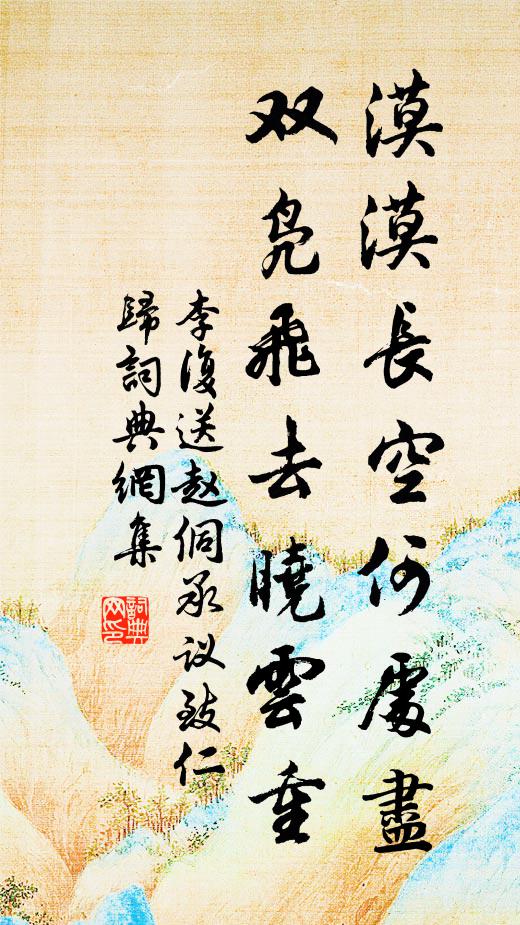 漠漠長空何處盡
双凫飛去曉雲重
李復送赵侗承议致仁
歸詞典網集
詞典网印